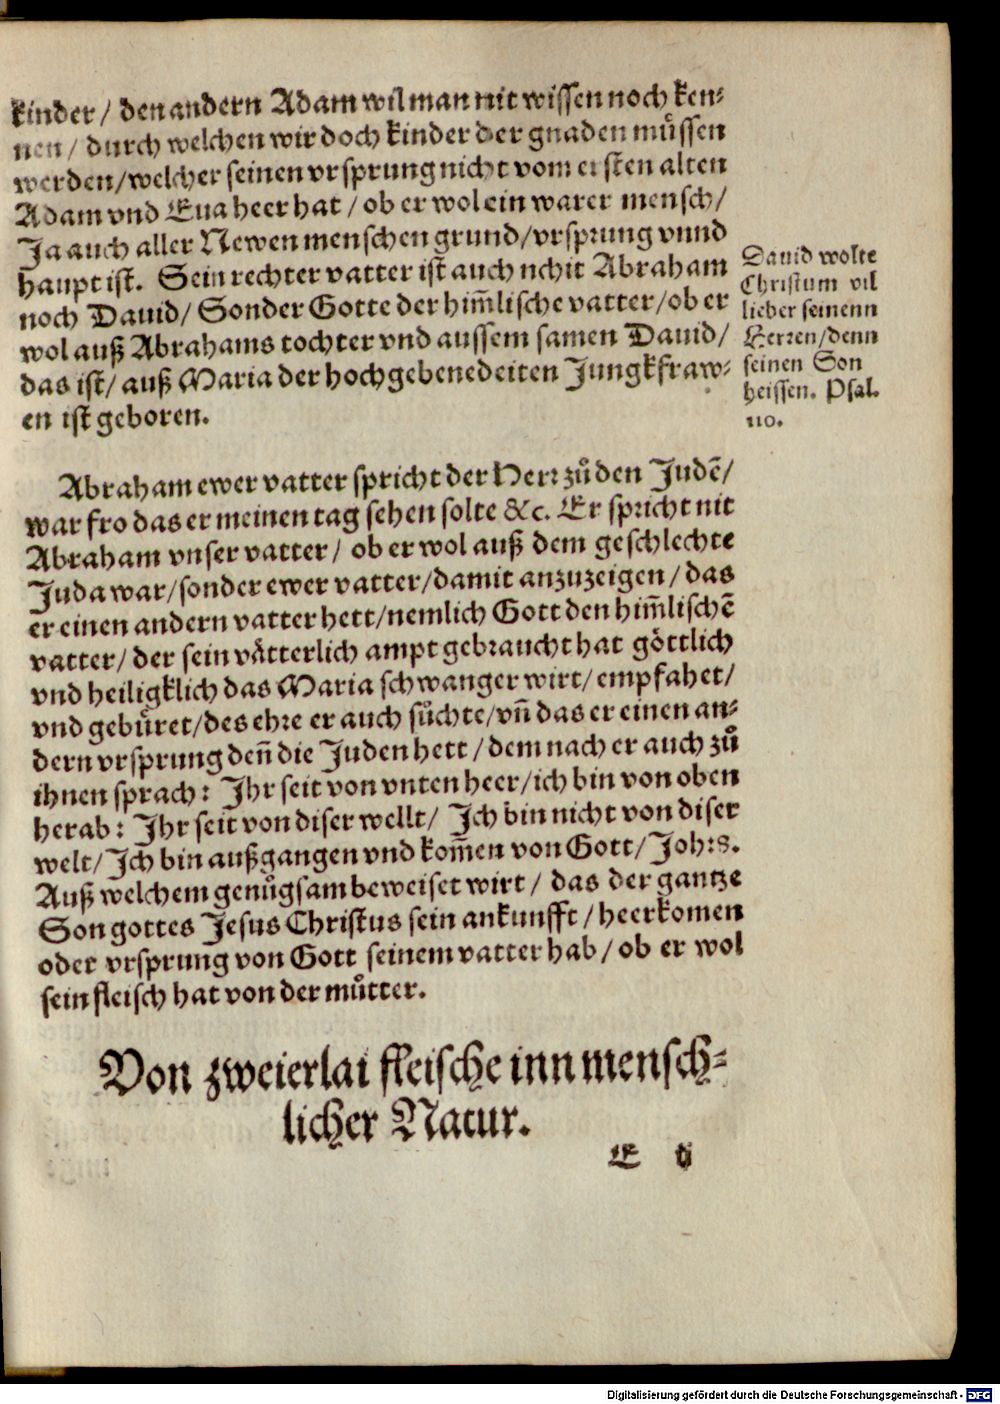 kinder / den andern Adam wil man nit wissen noch ken⸗
nen / durch welchen wir doch kinder der gnaden muͤssen
werden / welcher seinen vrsprung nicht vom ersten alten
Adam vnd Eua heer hat / ob er wol ein warer mensch /
Ja auch aller Newen menschen grund / vrsprung vnnd
haupt ist. Sein rechter vatter ist auch nchit Abraham
noch Dauid / Sonder Gotte der him̃lische vatter / ob er
wol auß Abrahams tochter vnd aussem samen Dauid /
das ist / auß Maria der hochgebenedeiten Jungkfraw⸗
en ist geboren.
Dauid wolte
Christum vil
lieber seinenn
Herren / denn
seinen Son
heissen. Psal.
110.
Abraham ewer vatter spricht der Herr zuͦ den Judẽ /
war fro das er meinen tag sehen solte &c. Er spricht nit
Abraham vnser vatter / ob er wol auß dem geschlechte
Juda war / sonder ewer vatter / damit anzuzeigen / das
er einen andern vatter hett / nemlich Gott den him̃lischẽ
vatter / der sein vaͤtterlich ampt gebraucht hat goͤttlich
vnd heiligklich das Maria schwanger wirt / empfahet /
vnd gebuͤret / des ehre er auch suͦchte / vñ das er einen an⸗
dern vrsprung deñ die Juden hett / dem nach er auch zuͦ
ihnen sprach : Jhr seit von vnten heer / ich bin von oben
herab : Jhr seit von diser wellt / Jch bin nicht von diser
welt / Jch bin außgangen vnd kom̃en von Gott / Joh: 8.
Auß welchem genuͦgsam beweiset wirt / das der gantze
Son gottes Jesus Christus sein ankunfft / heerkomen
oder vrsprung von Gott seinem vatter hab / ob er wol
sein fleisch hat von der muͦtter.
Von zweierlai fleische inn mensch⸗
licher Natur.
E ij
Digitalisierung gefördert durch die Deutsche Forschungsgemeinschaft - DFG